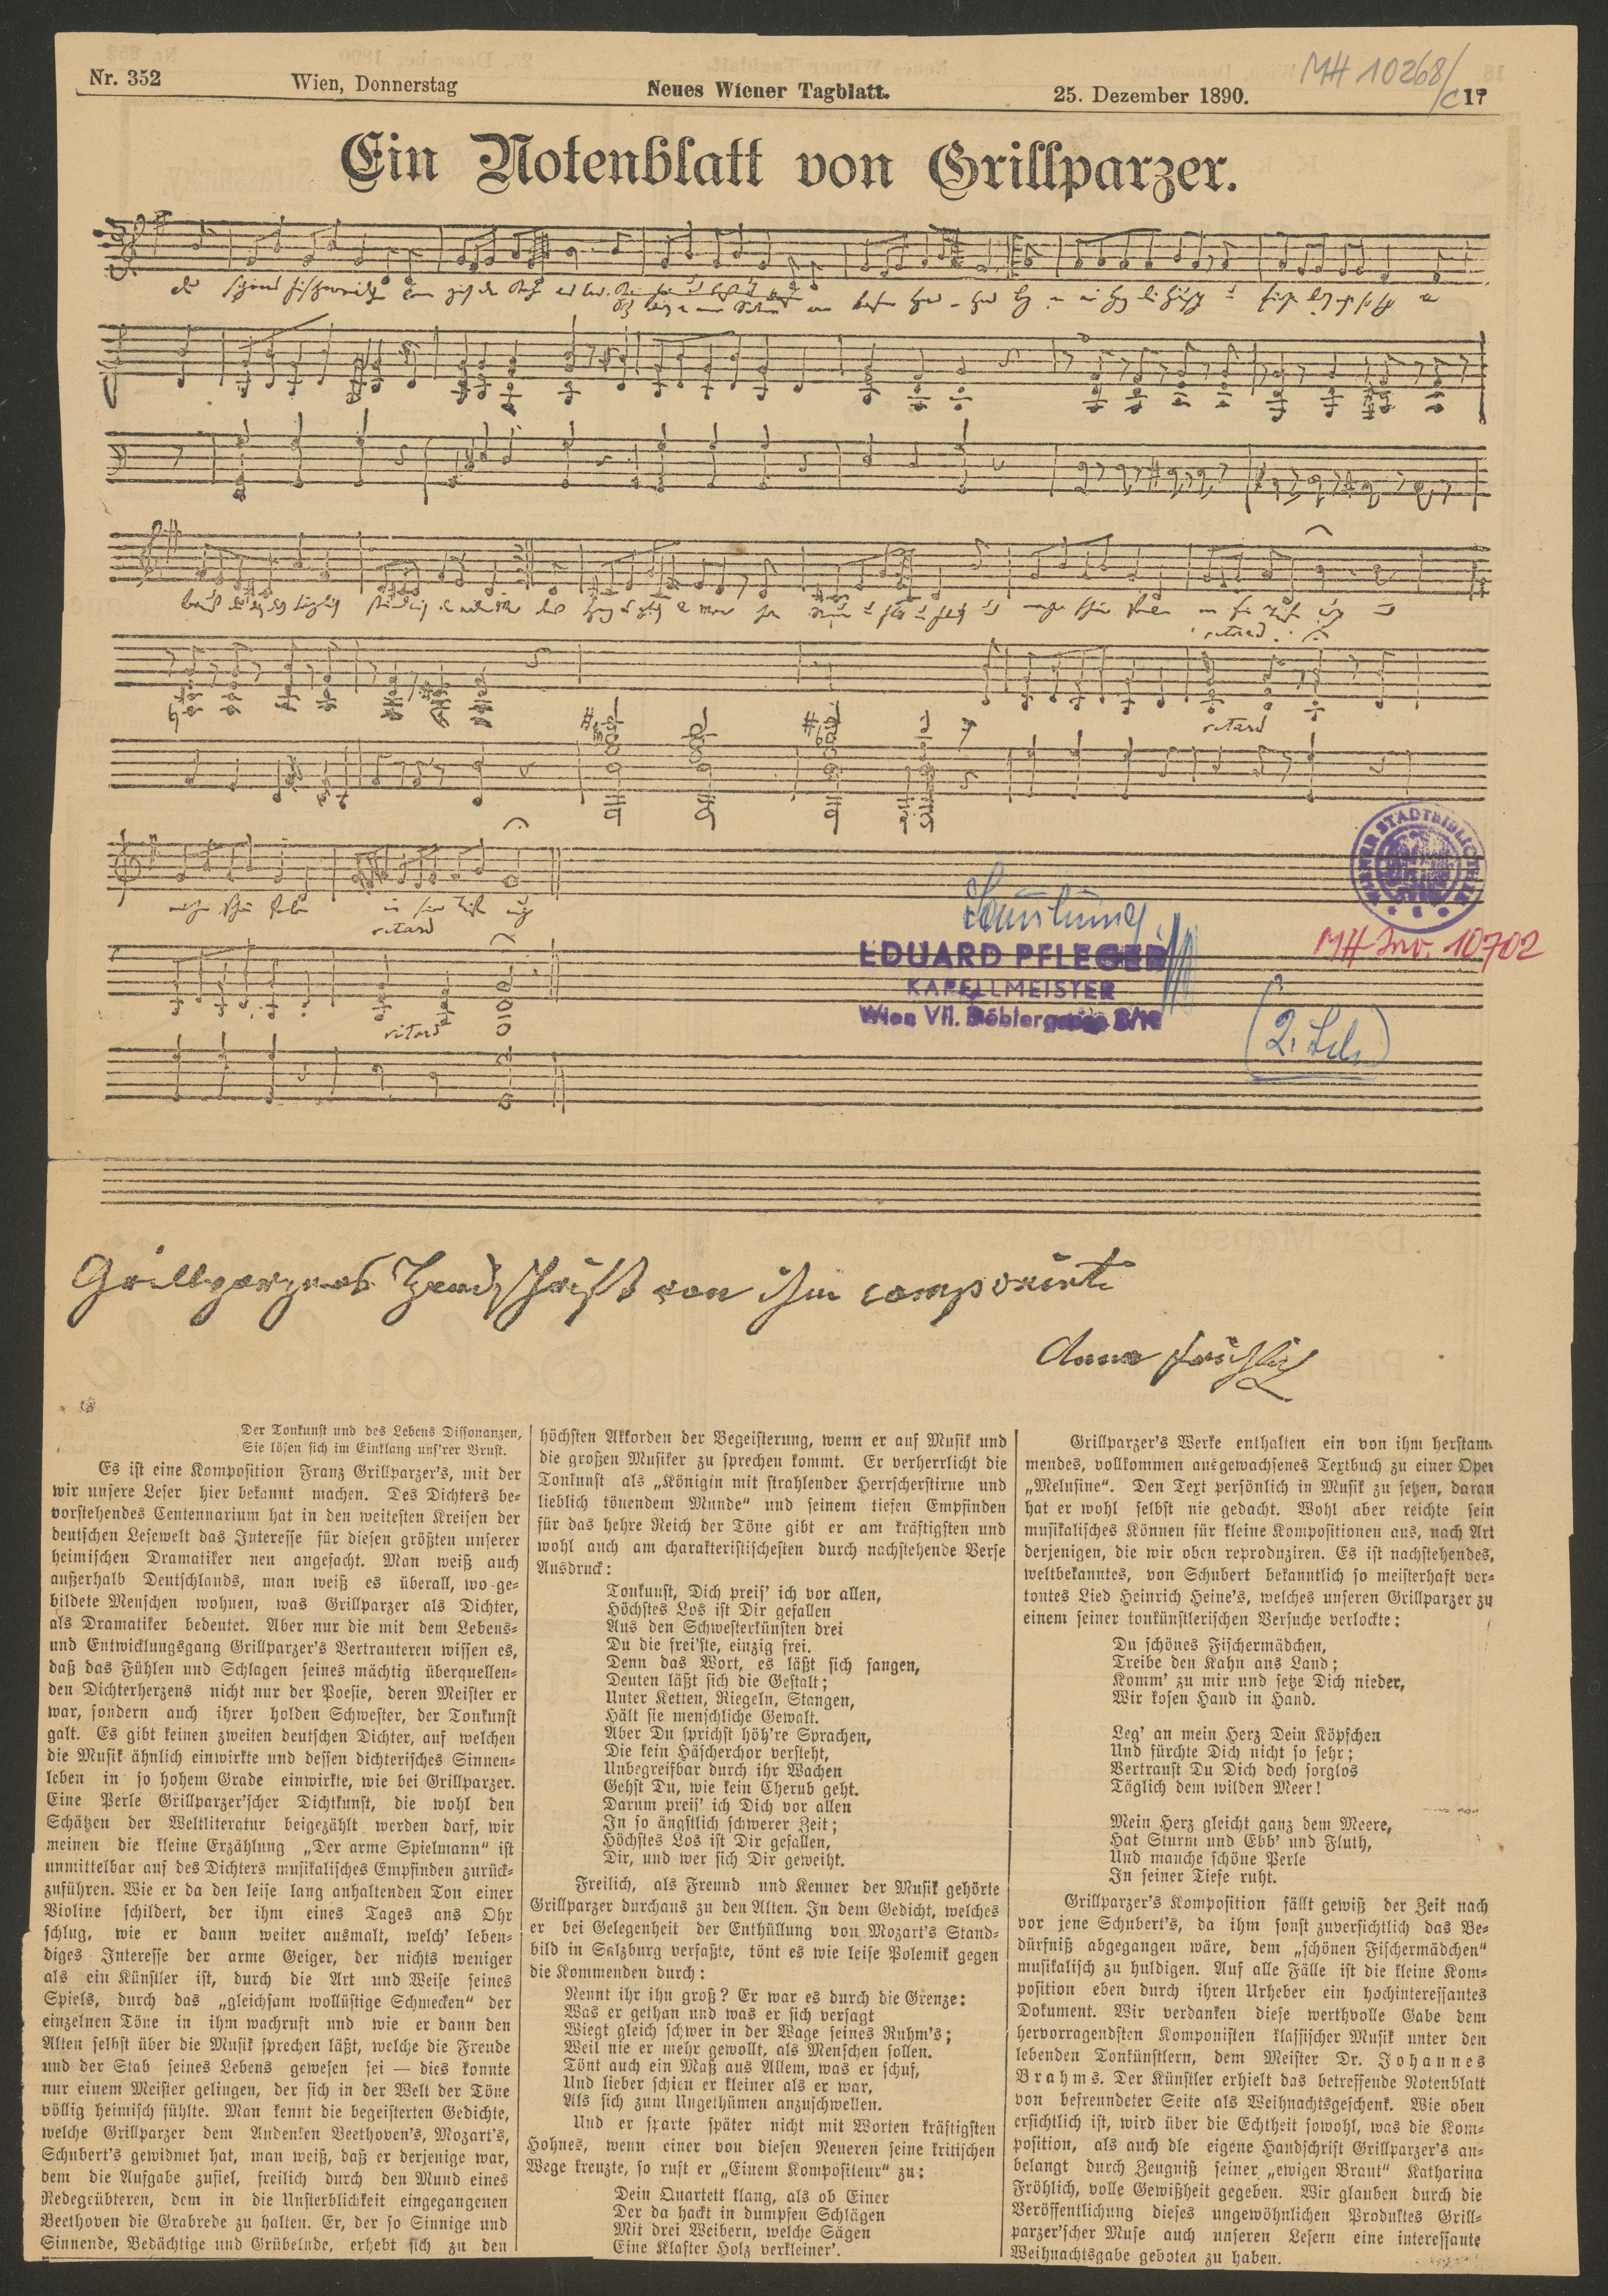 Nr. 352 Wien, Donnerstag Neues Wiener Tagblatt. 25. Dezember 1890. 17
MH 10268/c
Ein Notenblatt von Grillparzer.
retard
retard
retard
ritard
WIENER STADTBIBLIOTHEK
Sammlung
EDUARD PFLEGER
KAPELLMEISTER
Wien VII.
MH Inv. 10702
Grillparzers Handschrift von ihm componirt
Anna Fröhlich
Der Tonkunst und des Lebens Dissonanzen,
Sie lösen sich im Einklang uns'rer Brust.
Es ist eine Komposition Franz Grillparzer's, mit der
wir unsere Leser hier bekannt machen. Des Dichters be-
vorstehendes Centennarium hat in den weitesten Kreisen der
deutschen Lesewelt das Interesse für diesen größten unserer
heimischen Dramatiker neu angefacht. Man weiß auch
außerhalb Deutschlands, man weiß es überall, wo ge-
bildete Menschen wohnen, was Grillparzer als Dichter,
als Dramatiker bedeutet. Aber nur die mit dem Lebens-
und Entwicklungsgang Grillparzer's Vertrauteren wissen es,
daß das Fühlen und Schlagen seines mächtig überquellen-
den Dichterherzens nicht nur der Poesie, deren Meister er
war, sondern auch ihrer holden Schwester, der Tonkunst
galt. Es gibt keinen zweiten deutschen Dichter, auf welchen
die Musik ähnlich einwirkte und dessen dichterisches Sinnen-
leben in so hohem Grade einwirkte, wie bei Grillparzer.
Eine Perle Grillparzer'scher Dichtkunst, die wohl den
Schätzen der Weltliteratur beigezählt werden darf, wir
meinen die kleine Erzählung „Der arme Spielmann“ ist
unmittelbar auf des Dichters musikalisches Empfinden zurück-
zuführen. Wie er da den leise lang anhaltenden Ton einer
Violine schildert, der ihm eines Tages ans Ohr
schlug, wie er dann weiter ausmalt, welch' leben-
diges Interesse der arme Geiger, der nichts weniger
als ein Künstler ist, durch die Art und Weise seines
Spiels, durch das „gleichsam wollüstige Schmecken“ der
einzelnen Töne in ihm wachruft und wie er dann den
Alten selbst über die Musik sprechen läßt, welche die Freude
und der Stab seines Lebens gewesen sei — dies konnte
nur einem Meister gelingen, der sich in der Welt der Töne
völlig heimisch fühlte. Man kennt die begeisterten Gedichte,
welche Grillparzer dem Andenken Beethoven's, Mozart's,
Schubert's gewidmet hat, man weiß, daß er derjenige war,
dem die Aufgabe zufiel, freilich durch den Mund eines
Redegeübteren, dem in die Unsterblichkeit eingegangenen
Beethoven die Grabrede zu halten. Er, der so Sinnige und
Sinnende, Bedächtige und Grübelnde, erhebt sich zu den
höchsten Akkorden der Begeisterung, wenn er auf Musik und
die großen Musiker zu sprechen kommt. Er verherrlicht die
Tonkunst als „Königin mit strahlender Herrscherstirne und
lieblich tönendem Munde“ und seinem tiefen Empfinden
für das hehre Reich der Töne gibt er am kräftigsten und
wohl auch am charakteristischesten durch nachstehende Verse
Ausdruck:
Tonkunst, Dich preis' ich vor allen,
Höchstes Los ist Dir gefallen
Aus den Schwesterkünsten drei
Du die frei'ste, einzig frei.
Denn das Wort, es läßt sich fangen,
Deuten läßt sich die Gestalt;
Unter Ketten, Riegeln, Stangen,
Hält sie menschliche Gewalt.
Aber Du sprichst höh're Sprachen,
Die kein Häscherchor versteht,
Unbegreifbar durch ihr Wachen
Gehst Du, wie kein Cherub geht.
Darum preis' ich Dich vor allen
In so ängstlich schwerer Zeit;
Höchstes Los ist Dir gefallen,
Dir, und wer sich Dir geweiht.
Freilich, als Freund und Kenner der Musik gehörte
Grillparzer durchaus zu den Alten. In dem Gedicht, welches
er bei Gelegenheit der Enthüllung von Mozart's Stand-
bild in Salzburg verfaßte, tönt es wie leise Polemik gegen
die Kommenden durch:
Nennt ihr ihn groß? Er war es durch die Grenze:
Was er gethan und was er sich versagt
Wiegt gleich schwer in der Wage seines Ruhm's;
Weil nie er mehr gewollt, als Menschen sollen.
Tönt auch ein Maß aus Allem, was er schuf,
Und lieber schien er kleiner als er war,
Als sich zum Ungethümen anzuschwellen.
Und er sparte später nicht mit Worten kräftigsten
Hohnes, wenn einer von diesen Neueren seine kritischen
Wege kreuzte, so ruft er „Einem Kompositeur“ zu:
Dein Quartett klang, als ob Einer
Der da hackt in dumpfen Schlägen
Mit drei Weibern, welche Sägen
Eine Klafter Holz verkleiner'.
Grillparzer's Werke enthalten ein von ihm herstam-
mendes, vollkommen ausgewachsenes Textbuch zu einer Oper
„Melusine“. Den Text persönlich in Musik zu setzen, daran
hat er wohl selbst nie gedacht. Wohl aber reichte sein
musikalisches Können für kleine Kompositionen aus, nach Art
derjenigen, die wir oben reproduziren. Es ist nachstehendes,
weltbekanntes, von Schubert bekanntlich so meisterhaft ver-
tontes Lied Heinrich Heine's, welches unseren Grillparzer zu
einem seiner tonkünstlerischen Versuche verlockte:
Du schönes Fischermädchen,
Treibe den Kahn ans Land;
Komm' zu mir und setze Dich nieder,
Wir kosen Hand in Hand.
Leg' an mein Herz Dein Köpfchen
Und fürchte Dich nicht so sehr;
Vertraust Du Dich doch sorglos
Täglich dem wilden Meer!
Mein Herz gleicht ganz dem Meere,
Hat Sturm und Ebb' und Fluth,
Und manche schöne Perle
In seiner Tiefe ruht.
Grillparzer's Komposition fällt gewiß der Zeit nach
vor jene Schubert's, da ihm sonst zuversichtlich das Be-
dürfniß abgegangen wäre, dem „schönen Fischermädchen“
musikalisch zu huldigen. Auf alle Fälle ist die kleine Kom-
position eben durch ihren Urheber ein hochinteressantes
Dokument. Wir verdanken diese werthvolle Gabe dem
hervorragendsten Komponisten klassischer Musik unter den
lebenden Tonkünstlern, dem Meister Dr. Johannes
Brahms. Der Künstler erhielt das betreffende Notenblatt
von befreundeter Seite als Weihnachtsgeschenk. Wie oben
ersichtlich ist, wird über die Echtheit sowohl, was die Kom-
position, als auch die eigene Handschrift Grillparzer's an-
belangt durch Zeugniß seiner „ewigen Braut“ Katharina
Fröhlich, volle Gewißheit gegeben. Wir glauben durch die
Veröffentlichung dieses ungewöhnlichen Produktes Grill-
parzer'scher Muse auch unseren Lesern eine interessante
Weihnachtsgabe geboten zu haben.